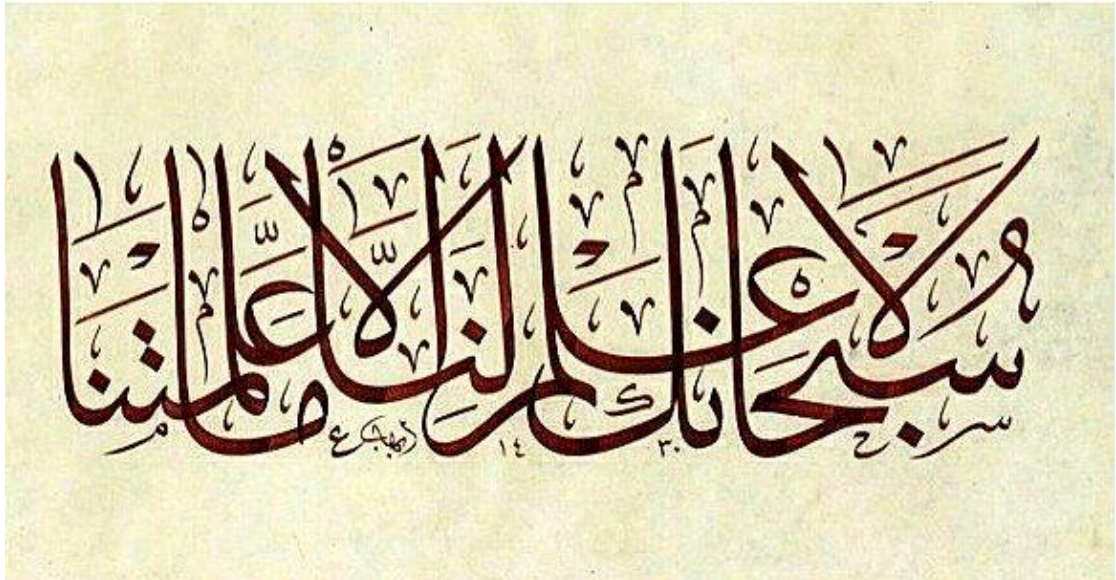 سُبْحَانَكَ لَا عِلْمَ لَنَا إِلَّا مَا عَلَّمْتَنَا
١٤٣٠